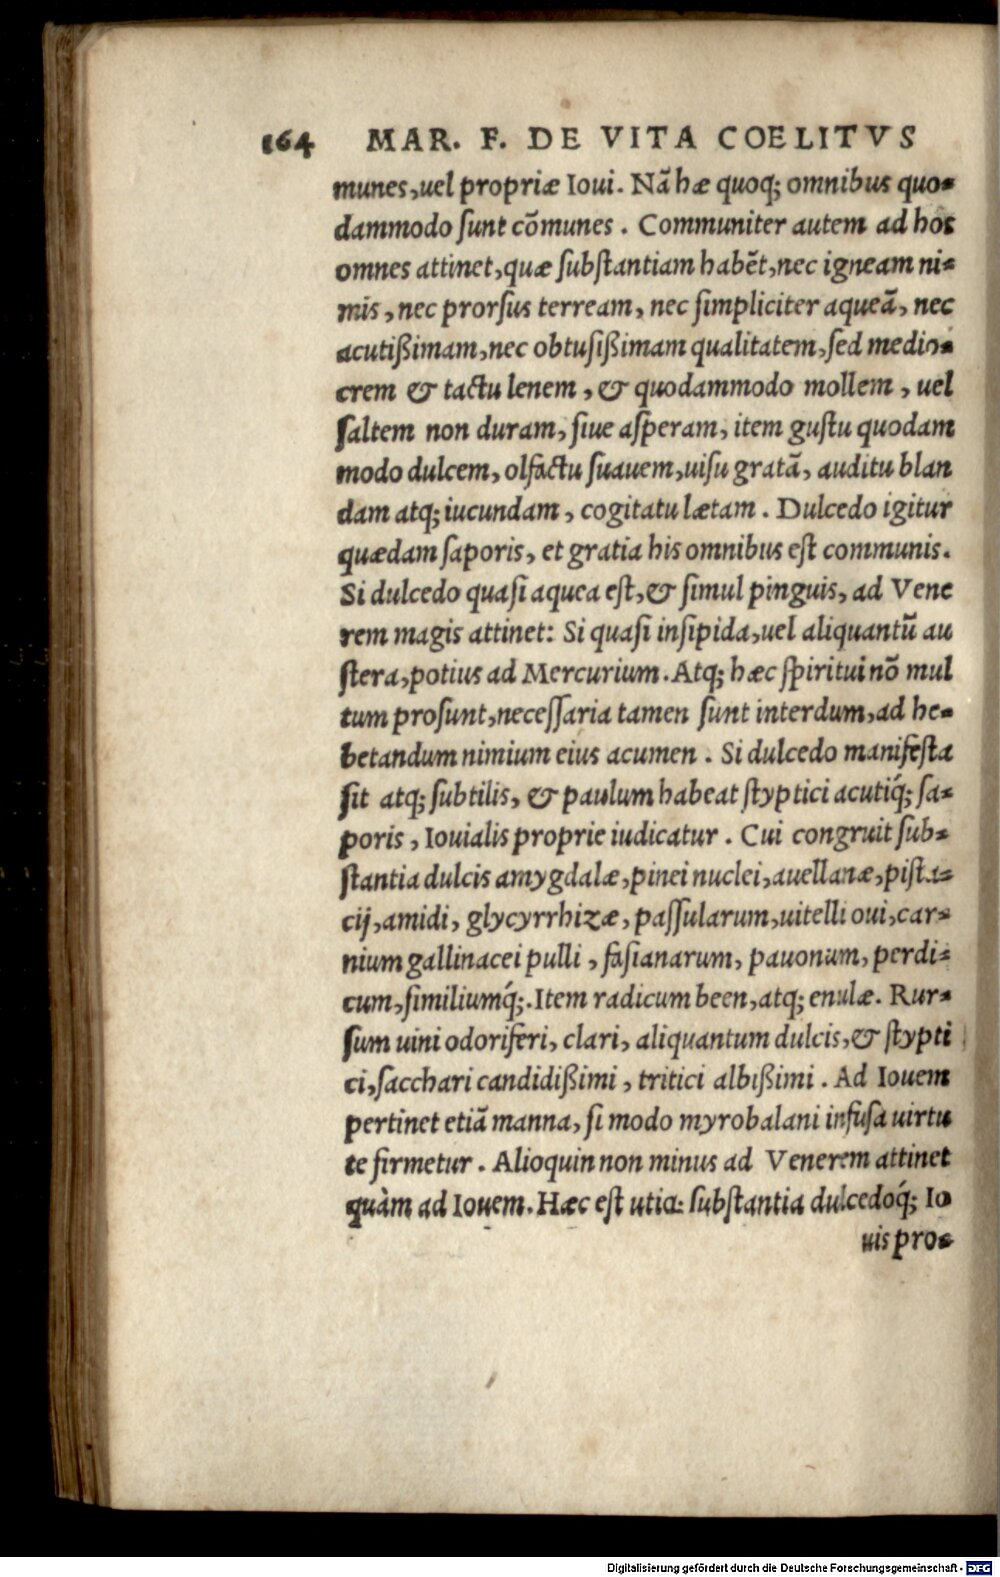 164 MAR. F. DE VITA COELITVS
munes,uel propriæ Ioui. Nã hæ quoq; omnibus quo-
dammodo ſunt cõmunes. Communiter autem ad hos
omnes attinet,quæ ſubſtantiam habẽt,nec igneam ni-
mis, nec prorſus terream, nec ſimpliciter aqueã, nec
acutißimam,nec obtuſißimam qualitatem,ſed medio-
crem & tactu lenem, & quodammodo mollem, uel
ſaltem non duram, ſiue aſperam, item guſtu quodam
modo dulcem, olfactu ſuauem,uiſu gratã, auditu blan
dam atq; iucundam, cogitatu lætam. Dulcedo igitur
quædam ſaporis, et gratia his omnibus eſt communis.
Si dulcedo quaſi aquea eſt,& ſimul pinguis, ad Vene
rem magis attinet: Si quaſi inſipida,uel aliquantũ au
ſtera,potius ad Mercurium. Atq; hæc ſpiritui nõ mul
tum proſunt,neceſſaria tamen ſunt interdum,ad he-
betandum nimium eius acumen. Si dulcedo manifeſta
ſit atq; ſubtilis, & paulum habeat ſtyptici acutiq́; ſa-
poris, Iouialis proprie iudicatur. Cui congruit ſub-
ſtantia dulcis amygdalæ,pinei nuclei,auellanæ,piſta-
cij,amidi, glycyrrhizæ, paſſularum,uitelli oui,car-
nium gallinacei pulli, faſianarum, pauonum, perdi-
cum,ſimiliumq́;. Item radicum been,atq; enulæ. Rur-
ſum uini odoriferi, clari, aliquantum dulcis,& ſtypti
ci,ſacchari candidißimi, tritici albißimi. Ad Iouem
pertinet etiã manna, ſi modo myrobalani infuſa uirtu
te firmetur. Alioquin non minus ad Venerem attinet
quàm ad Iouem. Hæc eſt utiq: ſubſtantia dulcedoq́; Io
uis pro-
Digitalisierung gefördert durch die Deutsche Forschungsgemeinschaft - DFG